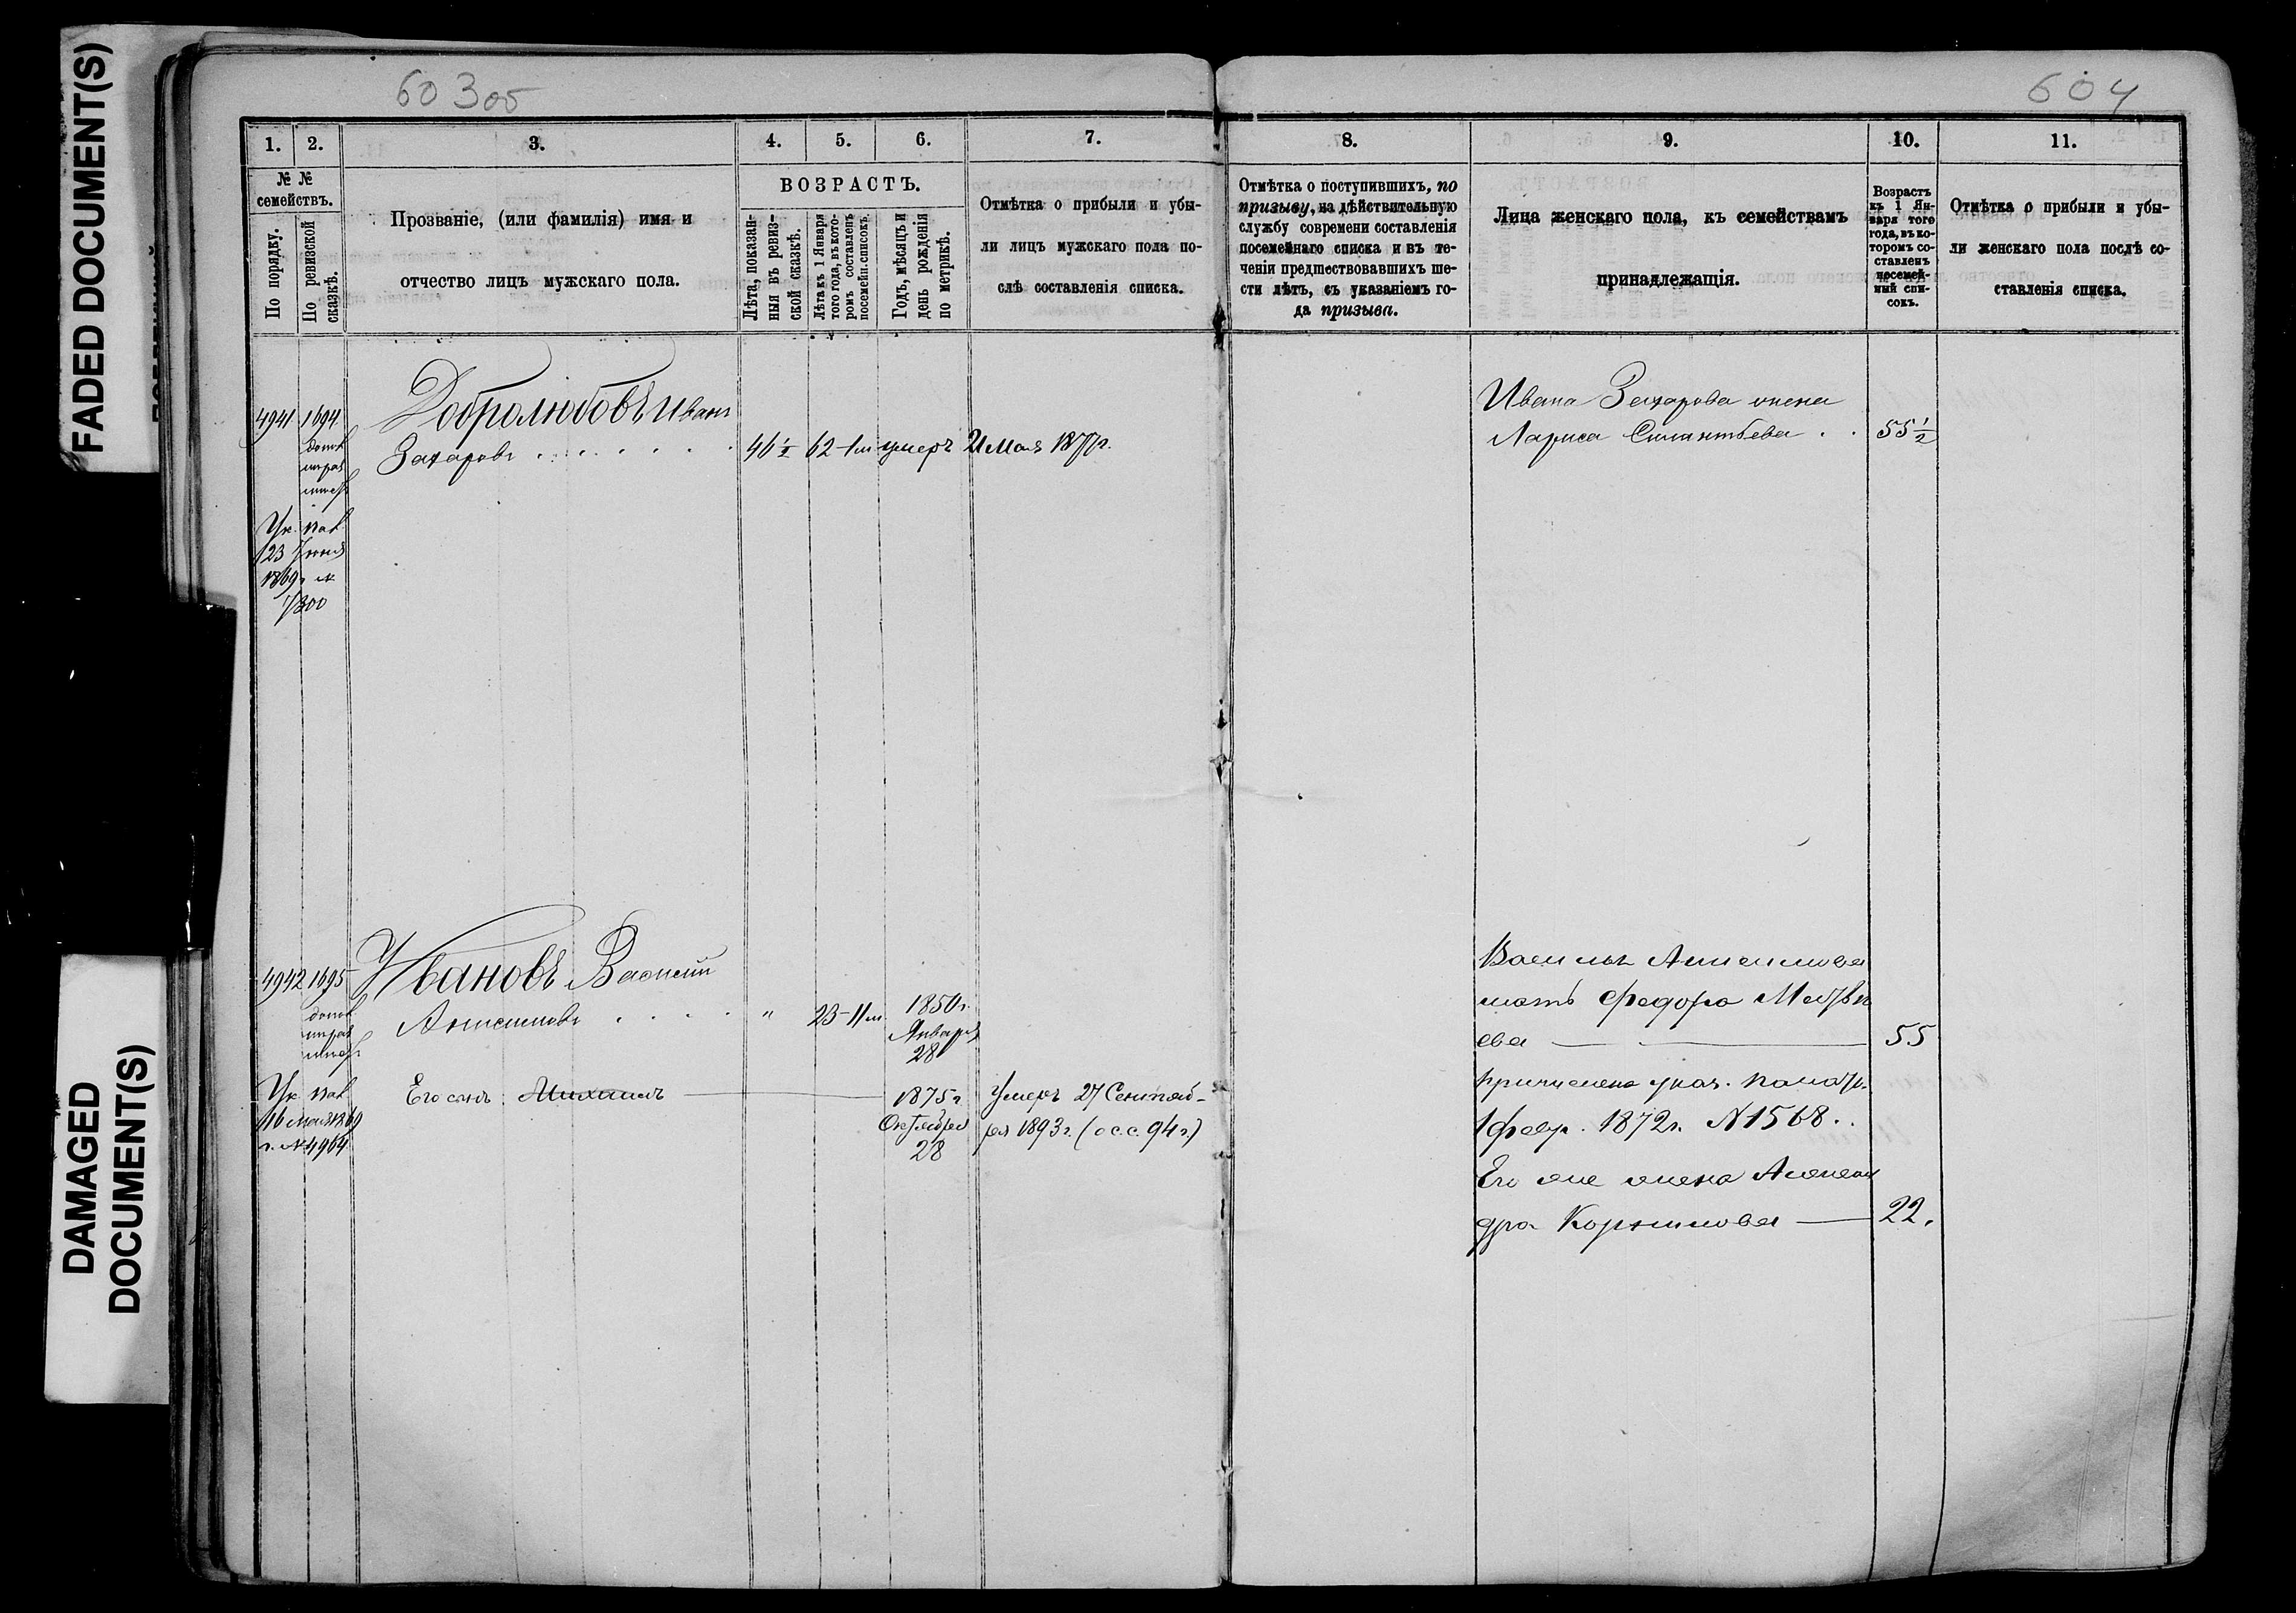 FADED DOCUMENT(S)
DAMAGED
DOCUMENT(S)
60 3 об
604
1.
2.
3.
4.
5.
6.
7.
№ №
семействъ.
По порядку.
По ревизской
сказкѣ.
Прозваніе, (или фамилія) имя и
отчество лицъ мужскаго пола.
ВОЗРАСТЪ.
Лѣта, показан-
ныя въ ревиз-
ской сказкѣ.
Лѣта къ 1 Января
того года, въ кото-
ромъ составленъ
посемейн. списокъ.
Годъ, мѣсяцъ и
день рожденія
по метрикѣ.
Отмѣтка о прибыли и убы-
ли лицъ мужскаго пола по-
слѣ составленія списка.
8.
9.
10.
11.
Отмѣтка о поступившихъ, по
призыву, на дѣйствительную
службу современи составленія
посемейнаго списка и въ те-
ченіи предшествовавшихъ ше-
сти лѣтъ, съ указаніемъ го-
да призыва.
Лица женскаго пола, къ семействамъ
принадлежащія.
Возрастъ
къ 1 Ян-
варя того
года, въ ко-
торомъ со-
ставленъ
посемей-
ный спи-
сокъ.
Отмѣтка о прибыли и убы-
ли женскаго пола послѣ со-
ставленія списка.
4941
1694
Добролюбовъ Иванъ
Захаровъ
46 1/2
62-1 м
умеръ 21 Мая 1877 г.
Ук. пал.
23 Іюня
1869 г. №
7300
Ивана Захарова жена
Лариса Силантьева
55 1/2
4942
1695
Ивановъ Василій
Анисимовъ
"
23-11 м
1850 г.
Января
28
Ук. пал.
16 Мая 1869
г. № 4964
Его сынъ Михаилъ
1875 г.
Октября
28
Умеръ 27 Сентяб-
ря 1893 г. (о с.с. 94 г.)
Василья Анисимова
мать Федора Матвѣ
ева
55
причислена указ. палаты
1 февр. 1872 г. № 1568.
Его же жена Алексан
дра Корнилова
22.